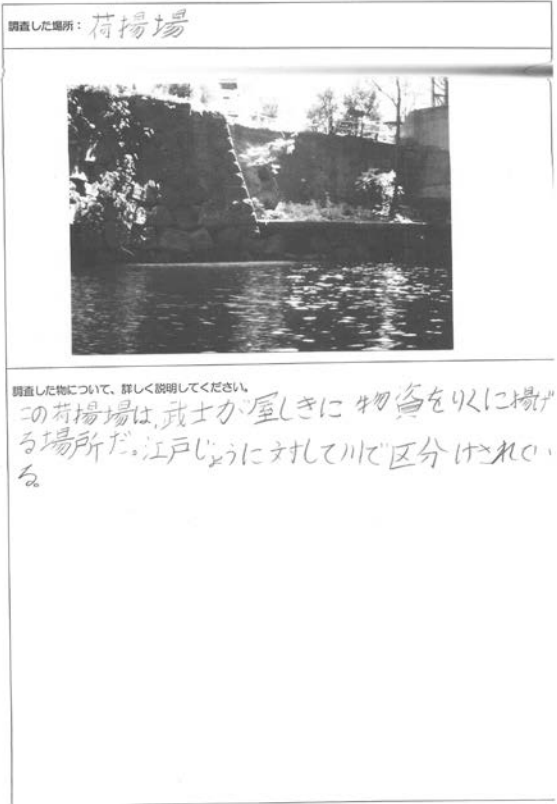 調査した場所：荷揚場
調査した物について、詳しく説明してください。
この荷揚場は、武士が屋しきに物資をりくに揚げ
る場所だ。江戸じょうに対して川で区分けされてい
る。